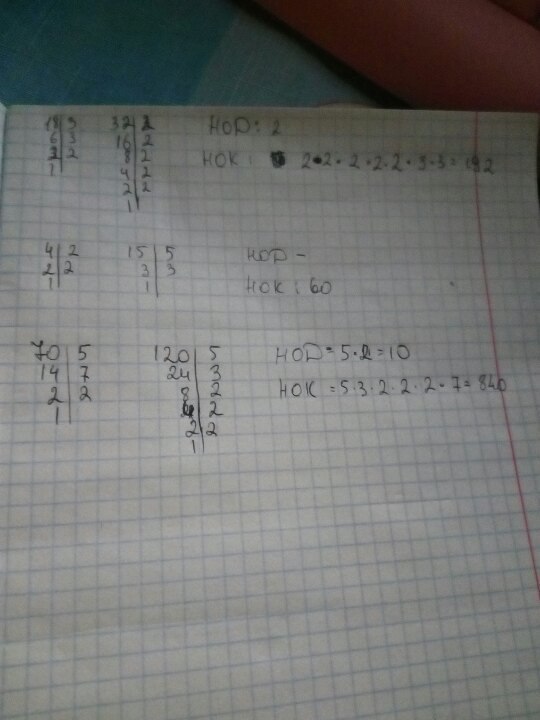 18|3 32|2 НОД: 2
6|3 16|2
2|2 8|2 НОК: 2•2•2•2•2•3•3=192
1| 4|2
2|2
1|
4|2 15|5 НОД –
2|2 3|3
1| 1| НОК: 60
70|5 120|5 НОД=5•2=10
14|7 24|3
2|2 8|2 НОК=5•3•2•2•2•7=840
1| 4|2
2|2
1|